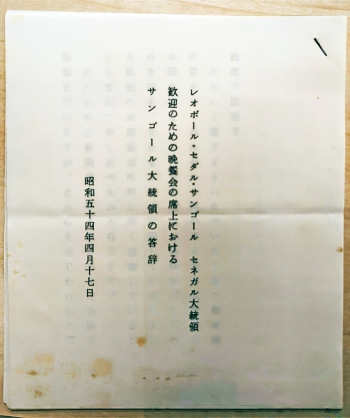 レオポール・セダル・サンゴール　セネガル大統領
歓迎のための晩餐会の席上における
サンゴール大統領の答辞
昭和五十四年四月十七日